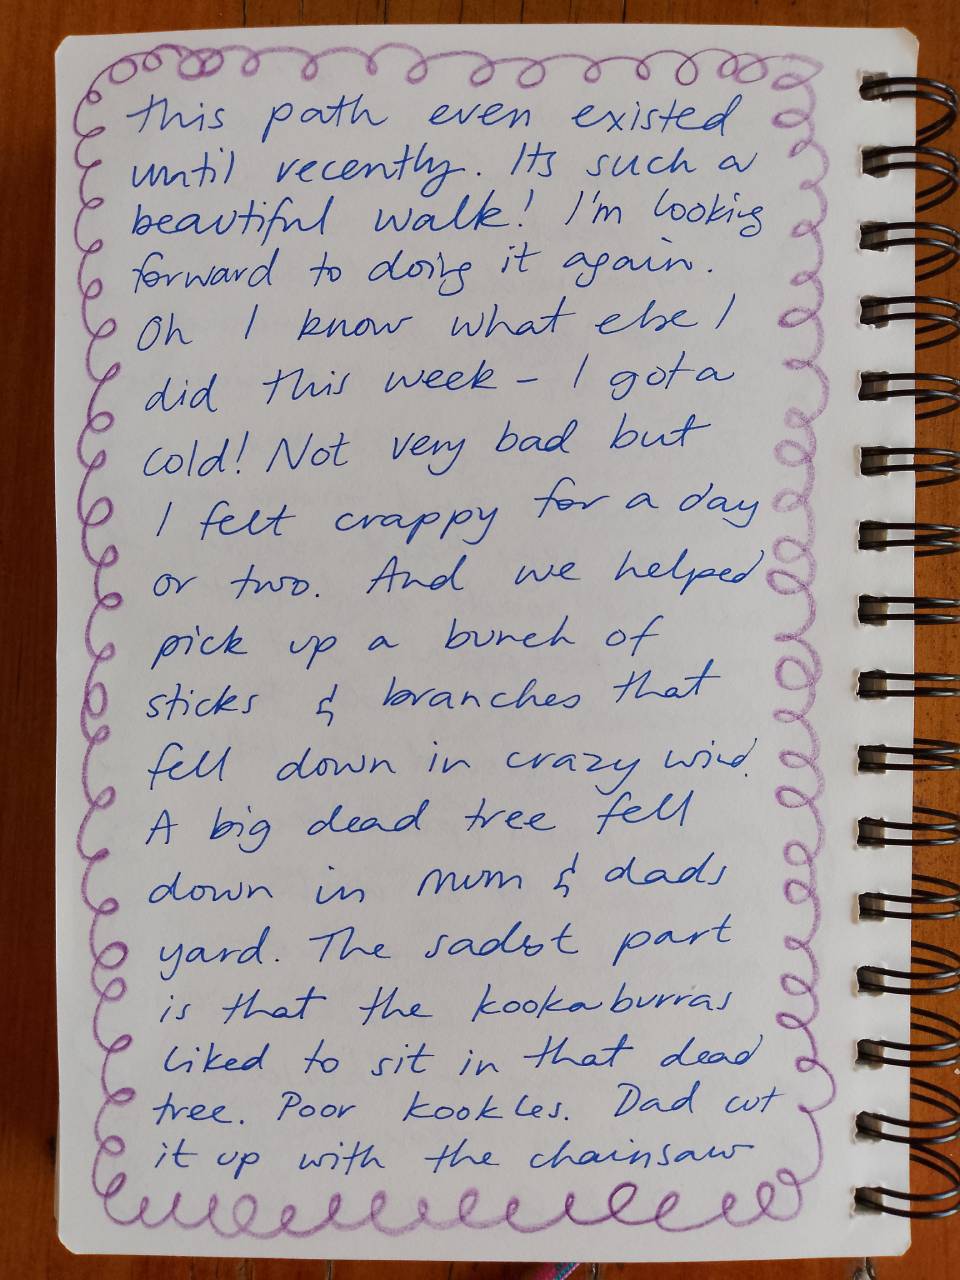 this path even existed
until recently. Its such a
beautiful walk! I'm looking
forward to doing it again.
Oh I know what else I
did this week - I got a
cold! Not very bad but
I felt crappy for a day
or two. And we helped
pick up a bunch of
sticks & branches that
fell down in crazy wind.
A big dead tree fell
down in mum & dads
yard. The saddest part
is that the kookaburras
liked to sit in that dead
tree. Poor kookies. Dad cut
it up with the chainsaw